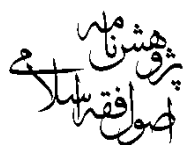 پژوهش‌نامه
اصول فقه اسلامی